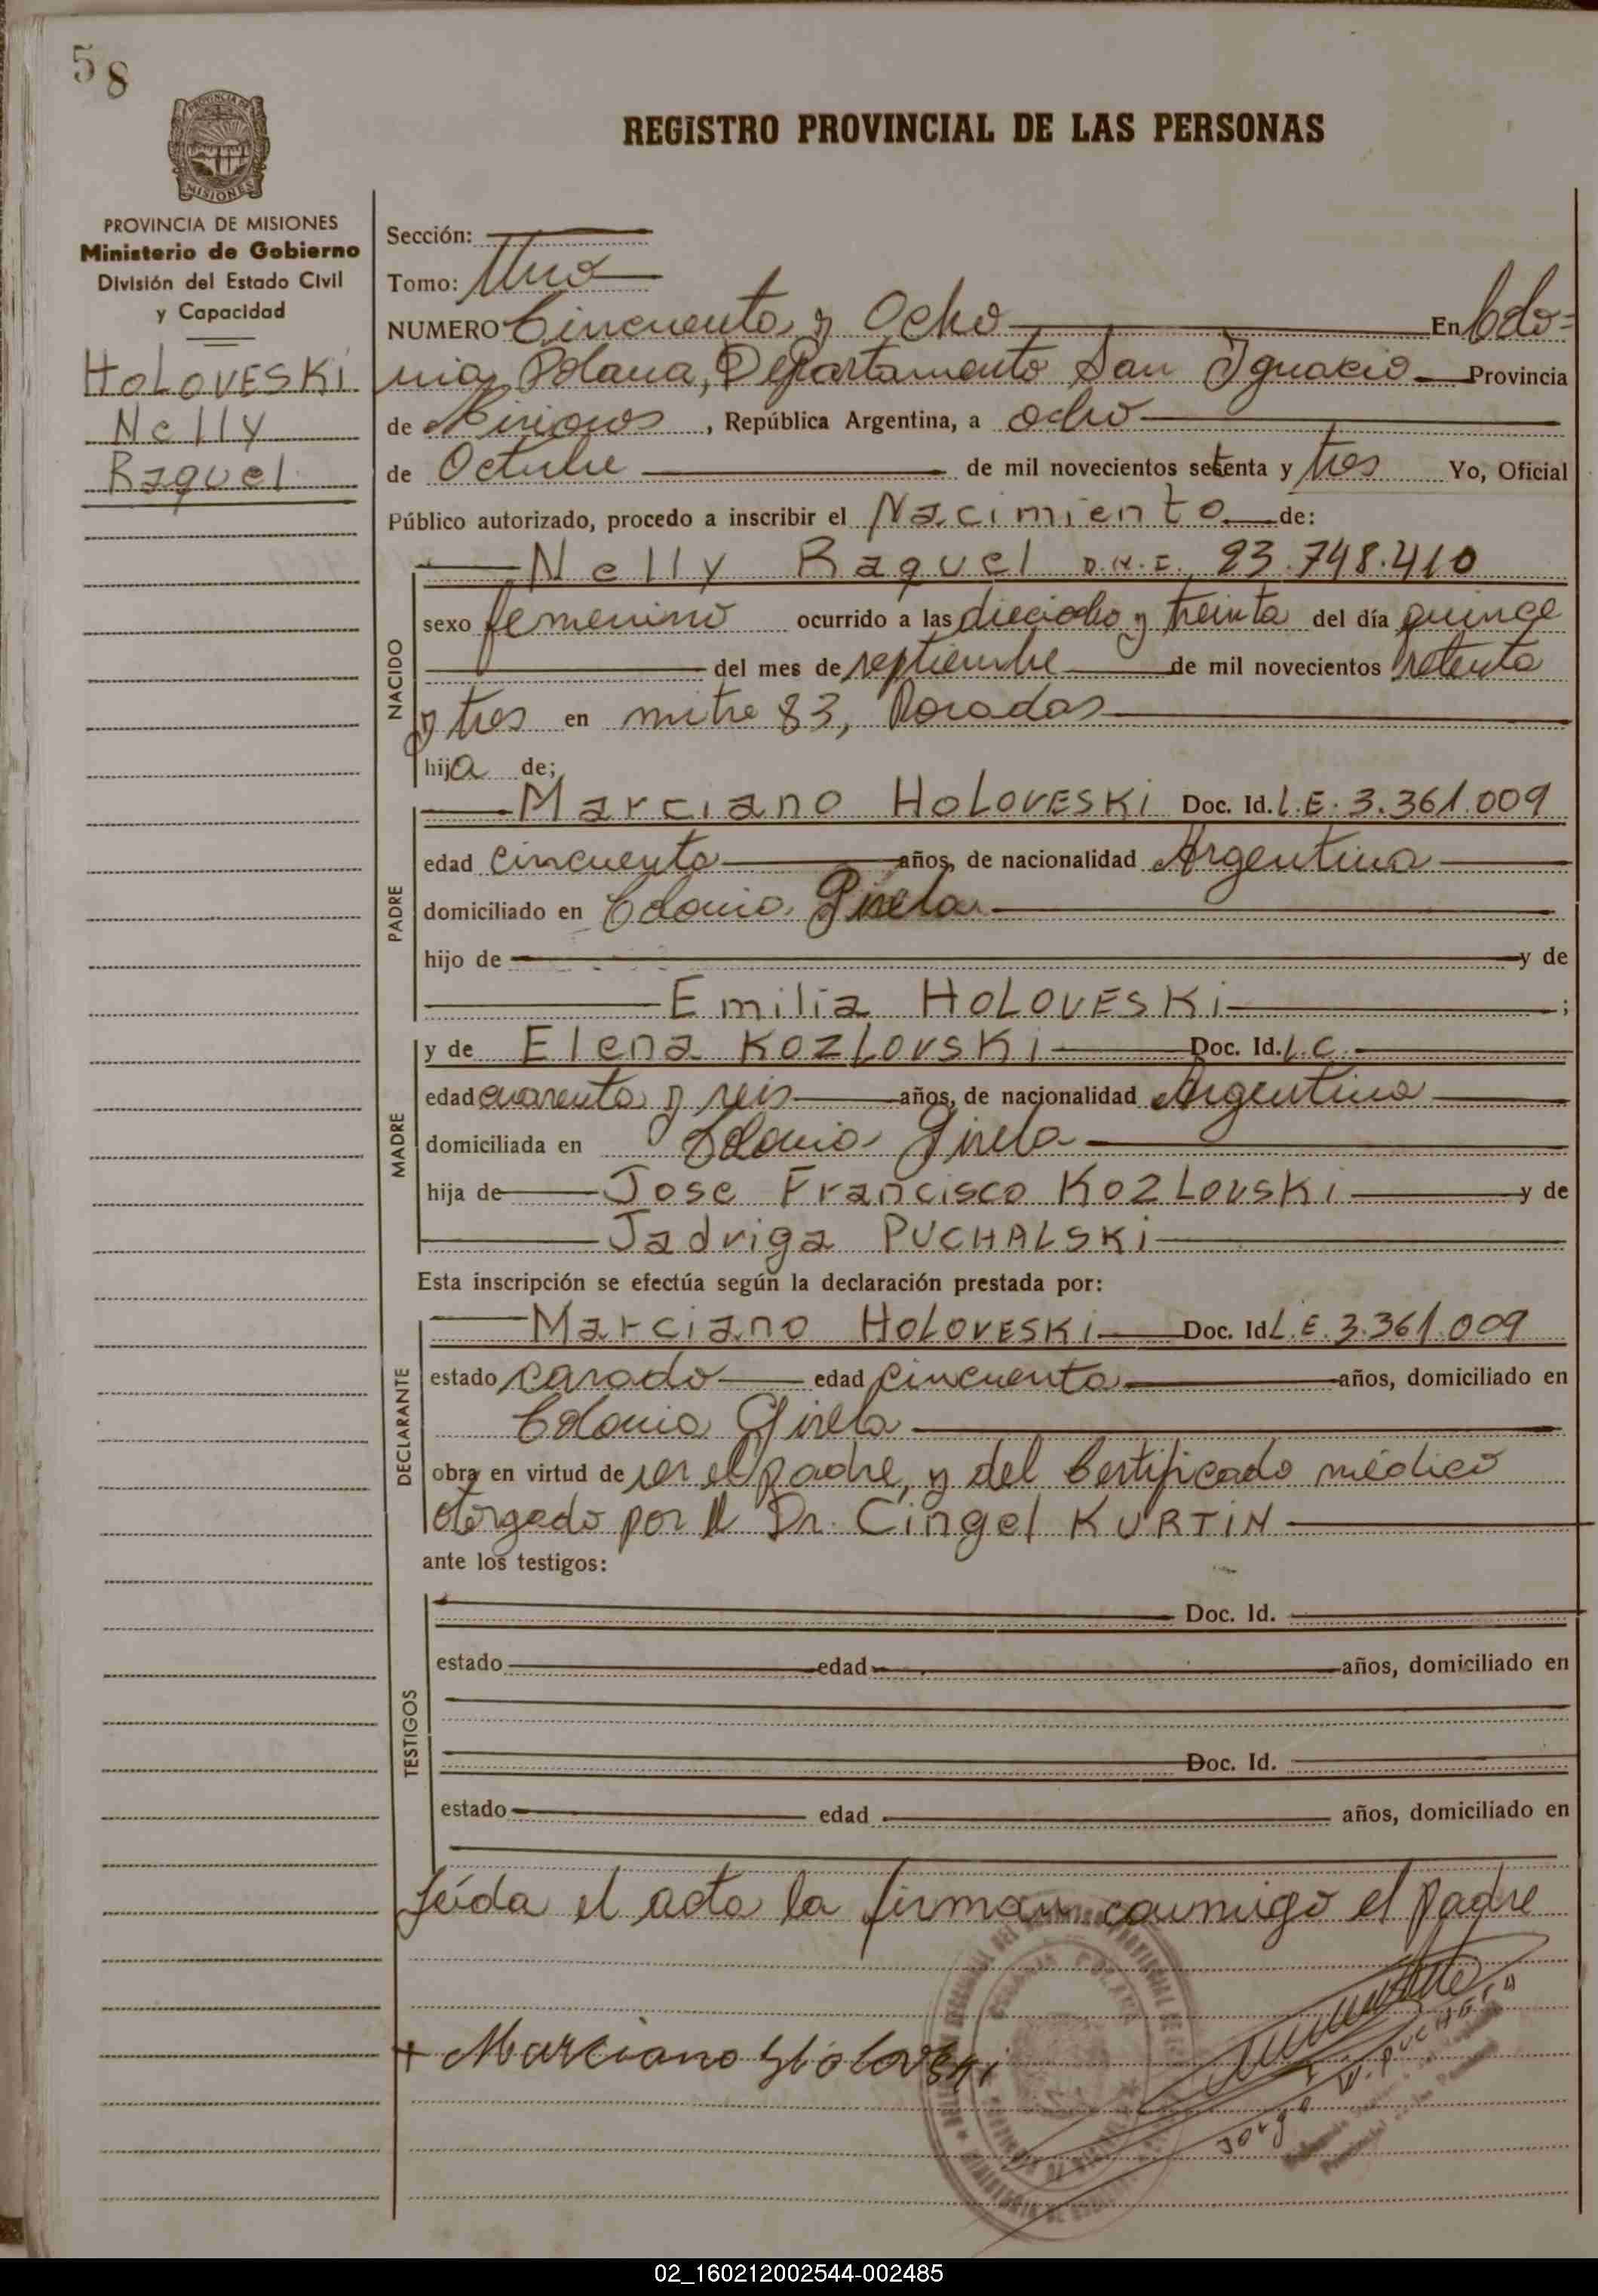 58
REGISTRO PROVINCIAL DE LAS PERSONAS
PROVINCIA DE MISIONES
MISIONES
PROVINCIA DE MISIONES
Ministerio de Gobierno
División del Estado Civil
y Capacidad
HOLOVESKI
Nelly
Raquel
Sección:
Tomo: Uno
NUMERO Cincuenta y Ocho En Colo=
nia Polana, Departamento San Ignacio Provincia
de Misiones, República Argentina, a ocho
de Octubre de mil novecientos setenta y tres Yo, Oficial
Público autorizado, procedo a inscribir el Nacimiento de:
NACIDO
Nelly Raquel D.N.I. 23.748.410
sexo femenino ocurrido a las dieciocho y treinta del día quince
del mes de septiembre de mil novecientos setenta
y tres en mitre 83, Posadas
hija de;
PADRE
Marciano HOLOVESKI Doc. Id. L.E. 3.361.009
edad cincuenta años, de nacionalidad Argentina
domiciliado en Colonia Gisela
hijo de y de
Emilia HOLOVESKI ;
MADRE
y de Elena KOZLOVSKI Doc. Id. L.C.
edad cuarenta y seis años, de nacionalidad Argentina
domiciliada en Colonia Gisela
hija de Jose Francisco KOZLOVSKI y de
Jadviga PUCHALSKI
Esta inscripción se efectúa según la declaración prestada por:
DECLARANTE
Marciano HOLOVESKI Doc. Id L.E. 3.361.009
estado casado edad cincuenta años, domiciliado en
Colonia Gisela
obra en virtud de ser el padre, y del Certificado médico
otorgado por el Dr. Cingel KURTIN
ante los testigos:
TESTIGOS
Doc. Id.
estado edad años, domiciliado en
Doc. Id.
estado edad años, domiciliado en
Leída el acta la firman conmigo el padre
+ Marciano Holoveski
Jorge
02_160212002544-002485